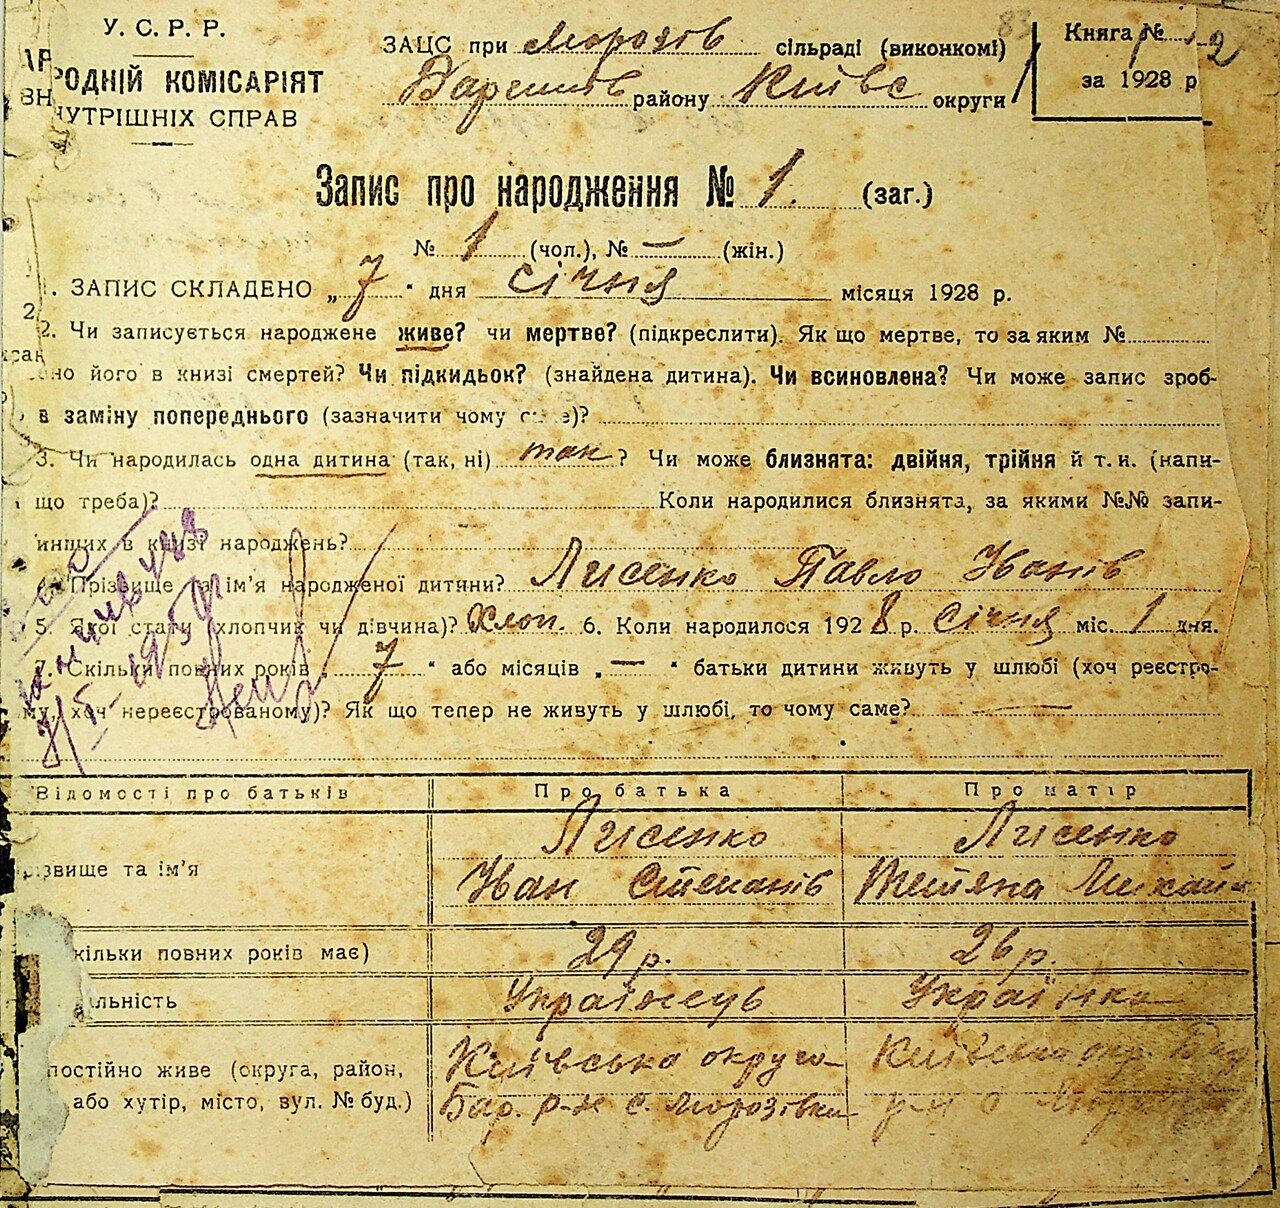 У. С. Р. Р.
РОДНІЙ КОМІСАРІЯТ
УТРІШНІХ СПРАВ
ЗАЦС при Морозів сільраді (виконкомі)
району Київс округи
Книга №
за 1928 р
Запис про народження № 1. (заг.)
№ 1 (чол.), № — (жін.)
1. ЗАПИС СКЛАДЕНО „ 7 " дня січня місяця 1928 р.
2. Чи записується народжене живе? чи мертве? (підкреслити). Як що мертве, то за яким №
но його в книзі смертей? Чи підкидьок? (знайдена дитина). Чи всиновлена? Чи може запис зроб-
в заміну попереднього (зазначити чому с е)?
3. Чи народилась одна дитина (так, ні) так ? Чи може близнята: двійня, трійня й т. и. (напи-
що треба)? Коли народилися близнята, за якими №№ запи-
инших в книзі народжень?
4. Прізвище та ім'я народженої дитини? Лисенко Павло Іванів
5. Якої стати (хлопчик чи дівчина)? Хлоп. 6. Коли народилося 1928 р. січня міс. 1 дня.
7. Скільки повних років „ 7 " або місяців „ — " батьки дитини живуть у шлюбі (хоч реєстро-
му, хоч нереєстрованому)? Як що тепер не живуть у шлюбі, то чому саме? —
Відомості про батьків Про батька Про матір
Лисенко Лисенко
ізвище та ім'я
Іван Степанів Тетяна Михайл
кільки повних років має) 29 р. 26 р.
льність Українець Українка
постійно живе (округа, район, Київська округа Київська окр. Бар
або хутір, місто, вул. № буд.) Бар. р-н с. Морозівка р-н с